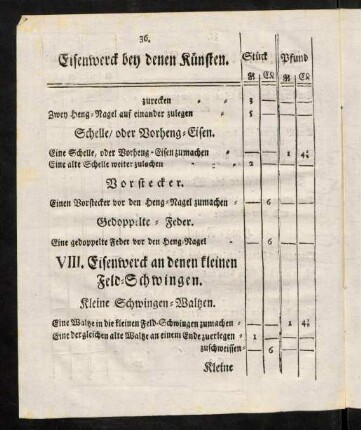 36.
Eisenwerck bey denen Künsten. Stück Pfund
zurecken " " 3
Zwey Heng-Nagel auf einander zulegen " 5
Schelle/ oder Vorheng-Eisen.
Eine Schelle, oder Vorheng-Eisen zumachen " — — 1 4½
Eine alte Schelle weiter zulochen " 2 — — —
Vorstecker.
Einen Vorstecker vor den Heng-Nagel zumachen — 6 — —
Gedoppelte-Feder.
Eine gedoppelte Feder vor den Heng-Nagel " — 6 — —
VIII. Eisenwerck an denen kleinen
Feld-Schwingen.
Kleine Schwingen-Waltzen.
Eine Waltze in die kleinen Feld-Schwingen zumachen — — 1 4½
Eine dergleichen alte Waltze an einem Ende zuerlegen 1 — — —
zuschweissen — 6 — —
Kleine